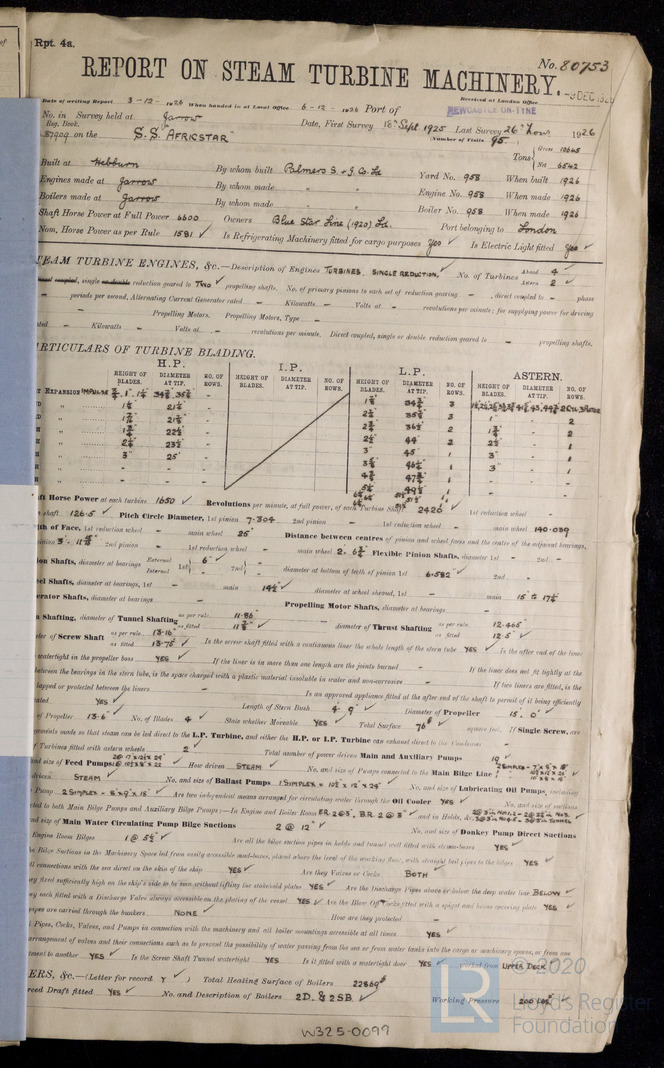 Rpt. 4a.
No. 80753
REPORT ON STEAM TURBINE MACHINERY.
-9 DEC 1926
Date of writing Report 3-12-1926 When handed in at Local Office 6-12-1926 Port of NEWCASTLE-ON-TYNE Received at London Office
No. in Survey held at Jarrow Date, First Survey 18th Sept 1925 Last Survey 26th Nov 1926
Reg. Book. (Number of Visits 95)
on the S.S. "AFRICSTAR" Tons Gross 10645 Net 6542
Built at Hebburn By whom built Palmers S. & I. Co. Ld Yard No. 958 When built 1926
Engines made at Jarrow By whom made " " Engine No. 958 When made 1926
Boilers made at Jarrow By whom made " " Boiler No. 958 When made 1926
Shaft Horse Power at Full Power 6600 Owners Blue Star Line (1920) Ld. Port belonging to London
Nom. Horse Power as per Rule 1581 Is Refrigerating Machinery fitted for cargo purposes Yes Is Electric Light fitted Yes
TEAM TURBINE ENGINES, &c.—Description of Engines TURBINES, SINGLE REDUCTION. No. of Turbines Ahead 4 Astern 2
single or double reduction geared to TWO propelling shafts. No. of primary pinions to each set of reduction gearing - direct coupled to - phase
periods per second. Alternating Current Generator rated - Kilowatts - Volts at - revolutions per minute; for supplying power for driving
Propelling Motors. Propelling Motors, Type -
Kilowatts - Volts at - revolutions per minute. Direct coupled, single or double reduction geared to - propelling shafts.
ARTICULARS OF TURBINE BLADING.
H.P. I.P. L.P. ASTERN.
HEIGHT OF BLADES. DIAMETER AT TIP. NO. OF ROWS. HEIGHT OF BLADES. DIAMETER AT TIP. NO. OF ROWS. HEIGHT OF BLADES. DIAMETER AT TIP. NO. OF ROWS. HEIGHT OF BLADES. DIAMETER AT TIP. NO. OF ROWS.
EXPANSION IMPULSE
3" 25"
Horse Power at each turbine 1650 Revolutions per minute, at full power, of each Turbine Shaft 2426 1st reduction wheel -
shaft 126.5 Pitch Circle Diameter, 1st pinion 7.304 2nd pinion - 1st reduction wheel - main wheel 140.039
of Face, 1st reduction wheel - main wheel 25" Distance between centres of pinion and wheel faces and the centre of the adjacent bearings,
2nd pinion - 1st reduction wheel - main wheel Flexible Pinion Shafts, diameter 1st - 2nd -
Shafts, diameter at bearings External Internal 1st 6" 2nd - diameter at bottom of teeth of pinion 1st 6.582" 2nd -
Shafts, diameter at bearings, 1st - main 14½" diameter at wheel shroud, 1st - main
erator Shafts, diameter at bearings - Propelling Motor Shafts, diameter at bearings -
Shafting, diameter of Tunnel Shafting as per rule 11.86" as fitted diameter of Thrust Shafting as per rule 12.465" as fitted 12.5"
of Screw Shaft as per rule 13.16" as fitted 13.75" Is the screw shaft fitted with a continuous liner the whole length of the stern tube YES Is the after end of the liner
watertight in the propeller boss YES If the liner is in more than one length are the joints burned - If the liner does not fit tightly at the
between the bearings in the stern tube, is the space charged with a plastic material insoluble in water and non-corrosive - If two liners are fitted, is the
lapped or protected between the liners - Is an approved appliance fitted at the after end of the shaft to permit of it being efficiently
YES Length of Stern Bush 4' 9" Diameter of Propeller 15' 0"
of Propeller 13.6" No. of Blades 4 State whether Moveable YES Total Surface 76 square feet. If Single Screw, are
made so that steam can be led direct to the L.P. Turbine, and either the H.P. or L.P. Turbine can exhaust direct to the Condenser -
Turbines fitted with astern wheels 2 Total number of power driven Main and Auxiliary Pumps 19
size of Feed Pumps How driven STEAM No. and size of Pumps connected to the Main Bilge Line
driven STEAM No. and size of Ballast Pumps 1 SIMPLEX - 10½" x 12" x 24" No. and size of Lubricating Oil Pumps, including
Pump 2 SIMPLEX - 8" x 9" x 18" Are two independent means arranged for circulating water through the Oil Cooler YES No. and size of suctions
to both Main Bilge Pumps and Auxiliary Bilge Pumps:—In Engine and Boiler Room E.R. 2 @ 3", B.R. 2 @ 3" and in Holds, &c.
size of Main Water Circulating Pump Bilge Suctions 2 @ 12" No. and size of Donkey Pump Direct Suctions
Engine Room Bilges 1 @ 5½" Are all the bilge suction pipes in holds and tunnel well fitted with strum-boxes YES
Bilge Suctions in the Machinery Space led from easily accessible mud-boxes, placed above the level of the working floor, with straight tail pipes to the bilges YES
connections with the sea direct on the skin of the ship YES Are they Valves or Cocks BOTH
fixed sufficiently high on the ship's side to be seen without lifting the stokehold plates YES Are the Discharge Pipes above or below the deep water line BELOW
each fitted with a Discharge Valve always accessible on the plating of the vessel YES Are the Blow Off Cocks fitted with a spigot and brass covering plate YES
pipes are carried through the bunkers NONE How are they protected -
Pipes, Cocks, Valves, and Pumps in connection with the machinery and all boiler mountings accessible at all times YES
arrangement of valves and their connections such as to prevent the possibility of water passing from the sea or from water tanks into the cargo or machinery spaces, or from one
to another YES Is the Screw Shaft Tunnel watertight YES Is it fitted with a watertight door YES worked from UPPER DECK
ERS, &c.—(Letter for record Y) Total Heating Surface of Boilers 22869
rced Draft fitted YES No. and Description of Boilers 2D. & 2SB. Working Pressure 200 LBS
W325-0099
LR © 2020
Lloyd's Register
Foundation